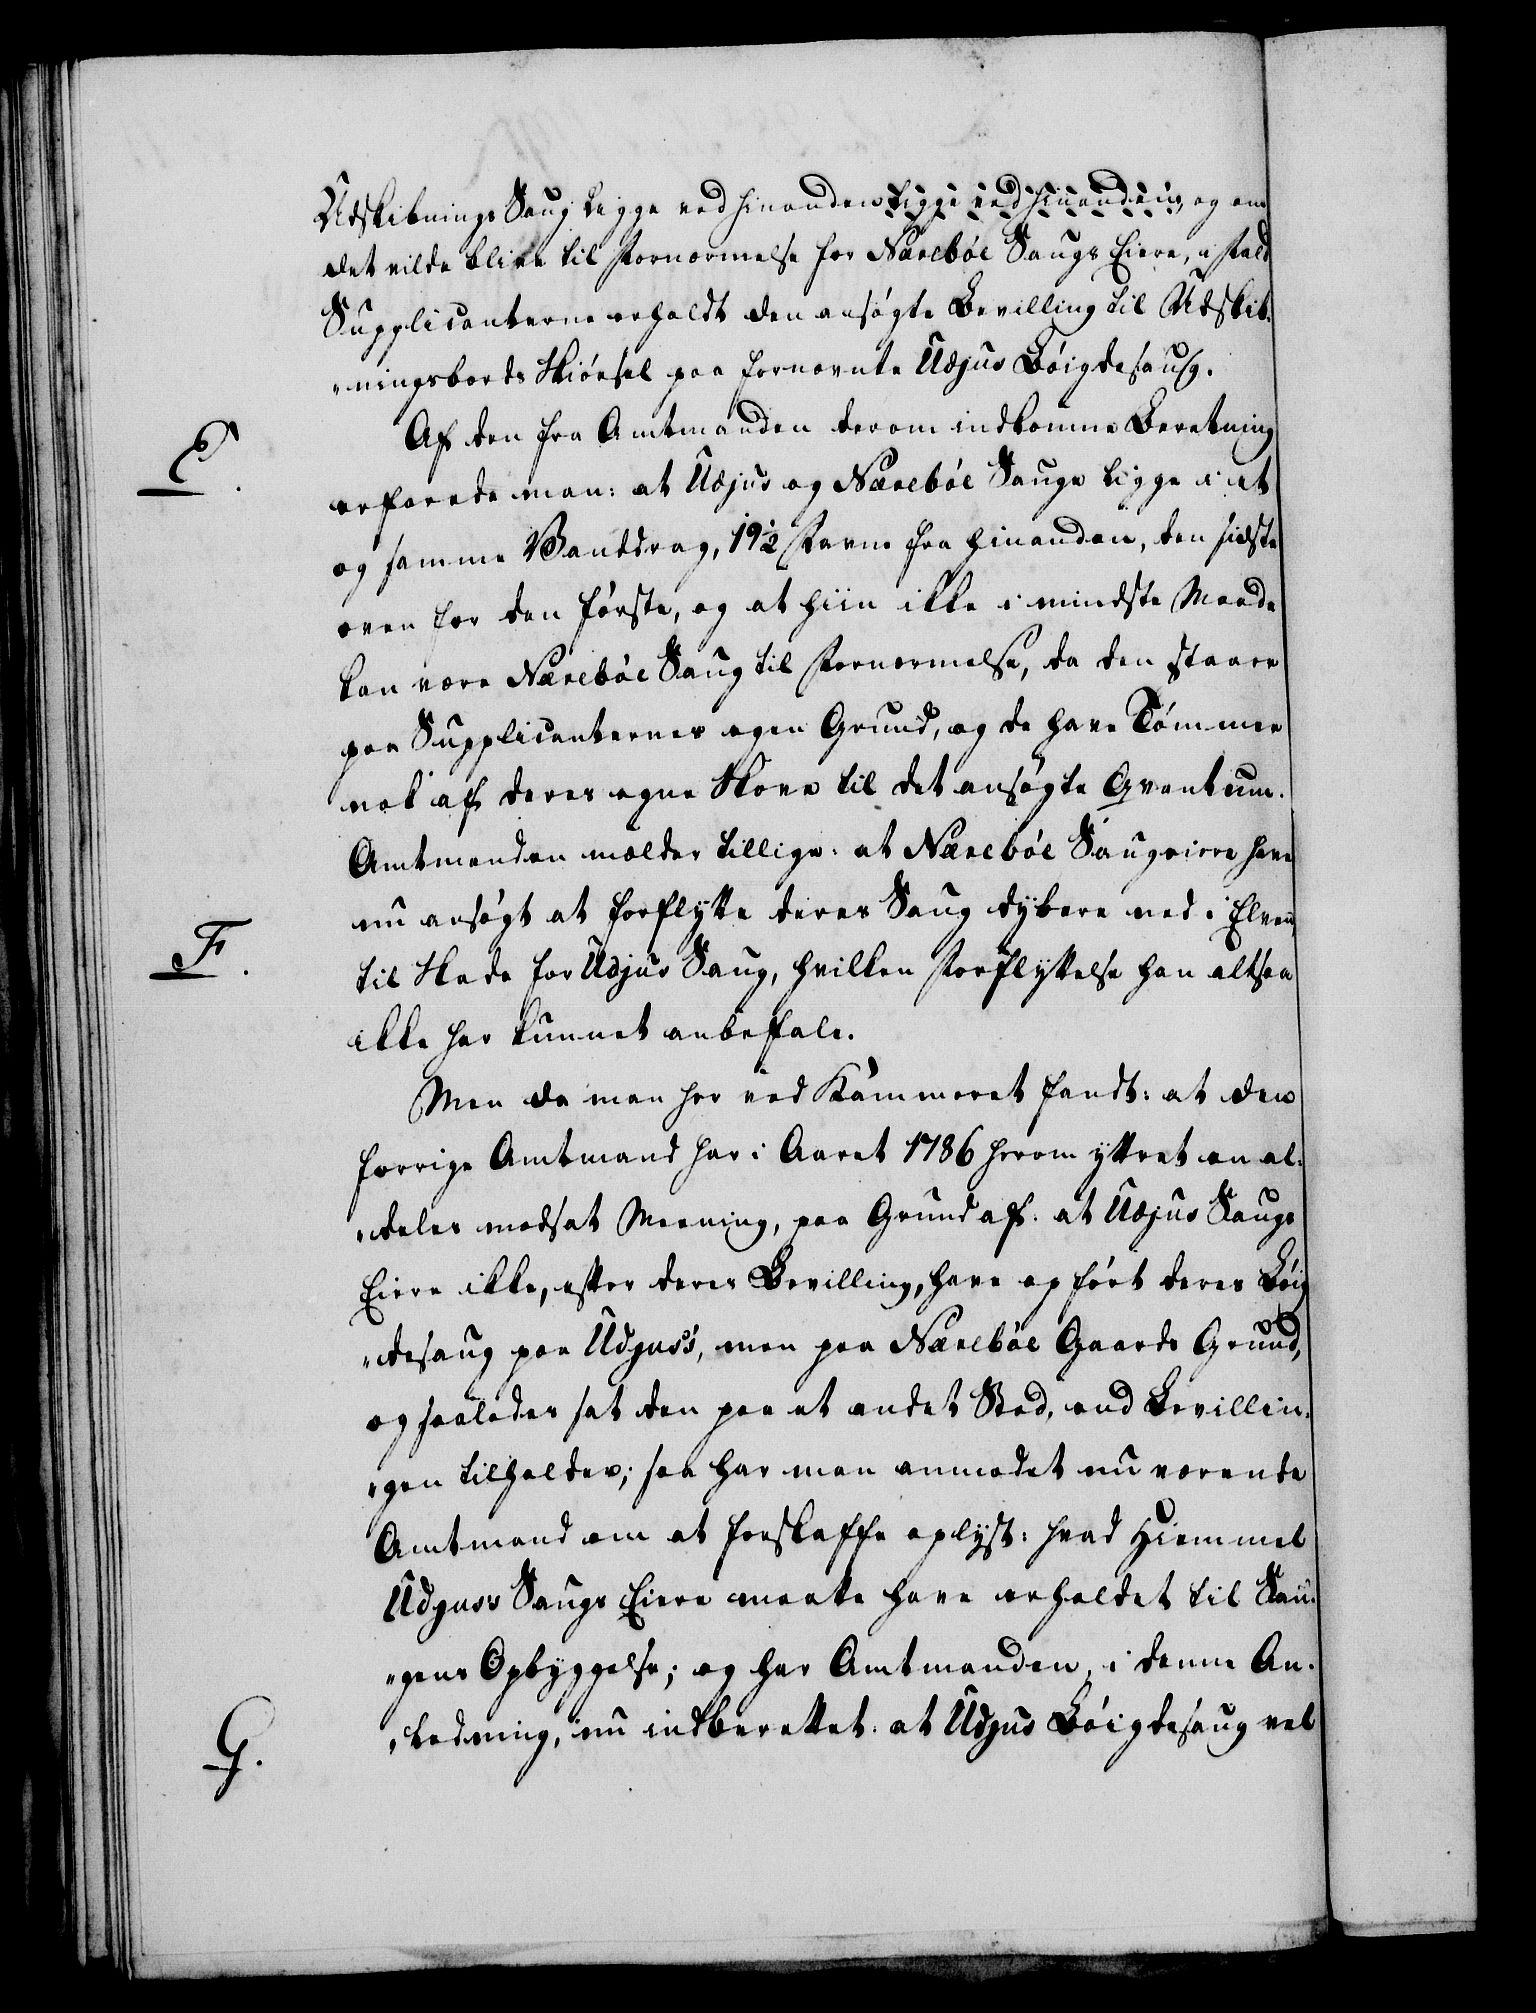 Udskibnings Saug ligge ved hinanden ligge ved hinanden, og om
det vilde blive til Fornærmelse for Nærebøe Saugs Eiere, i fald
Supplicanterne erholdt den ansøgte Bevilling til Udskib-
„ningsbords Skiørsel paa fornævnte Udjus Bøigdesaug.
E. Af den fra Amtmanden derom indkomne Beretning
erfarede man: at Udjus og Nærebøe Sauge ligge i et
og samme Vanddrag, 19½ Favne fra hinanden, den sidste
oven for den første, og at hiin ikke i mindste Maade
kan være Nærebøe Saug til Fornærmelse, da den staaer
paa Supplicanternes egen Grund, og de have Tømmer
nok af deres egne Skove til det ansøgte Qvantum.
Amtmanden melder tillige: at Nærebøe Saugeiere have
nu ansøgt at forflytte deres Saug dybere ned i Elven
F. til Skade for Udjus Saug, hvilken Forflyttelse han altsaa
ikke har kunnet anbefale.
Men da man her ved Kammeret fandt: at den
forrige Amtmand har i Aaret 1786 herom yttret en al-
„deles modsat Meening, paa Grund af: at Udjus Saugs
Eiere ikke, efter deres Bevilling, have opført deres Bøig
„desaug paa Udjuss, men paa Nærebøe Gaards Grund,
og saaledes sat den paa et andet Sted, end Bevillin-
„gen tilholder; saa har man anmodet nu værende
Amtmand om at forskaffe oplyst: hvad Hiemmel
Udjuss Saugs Eiere maatte have erholdet til Sau-
„gens Opbyggelse; og har Amtmanden, i denne An-
G. „ledning, nu indberettet: at Udjus Bøigdesaug vel